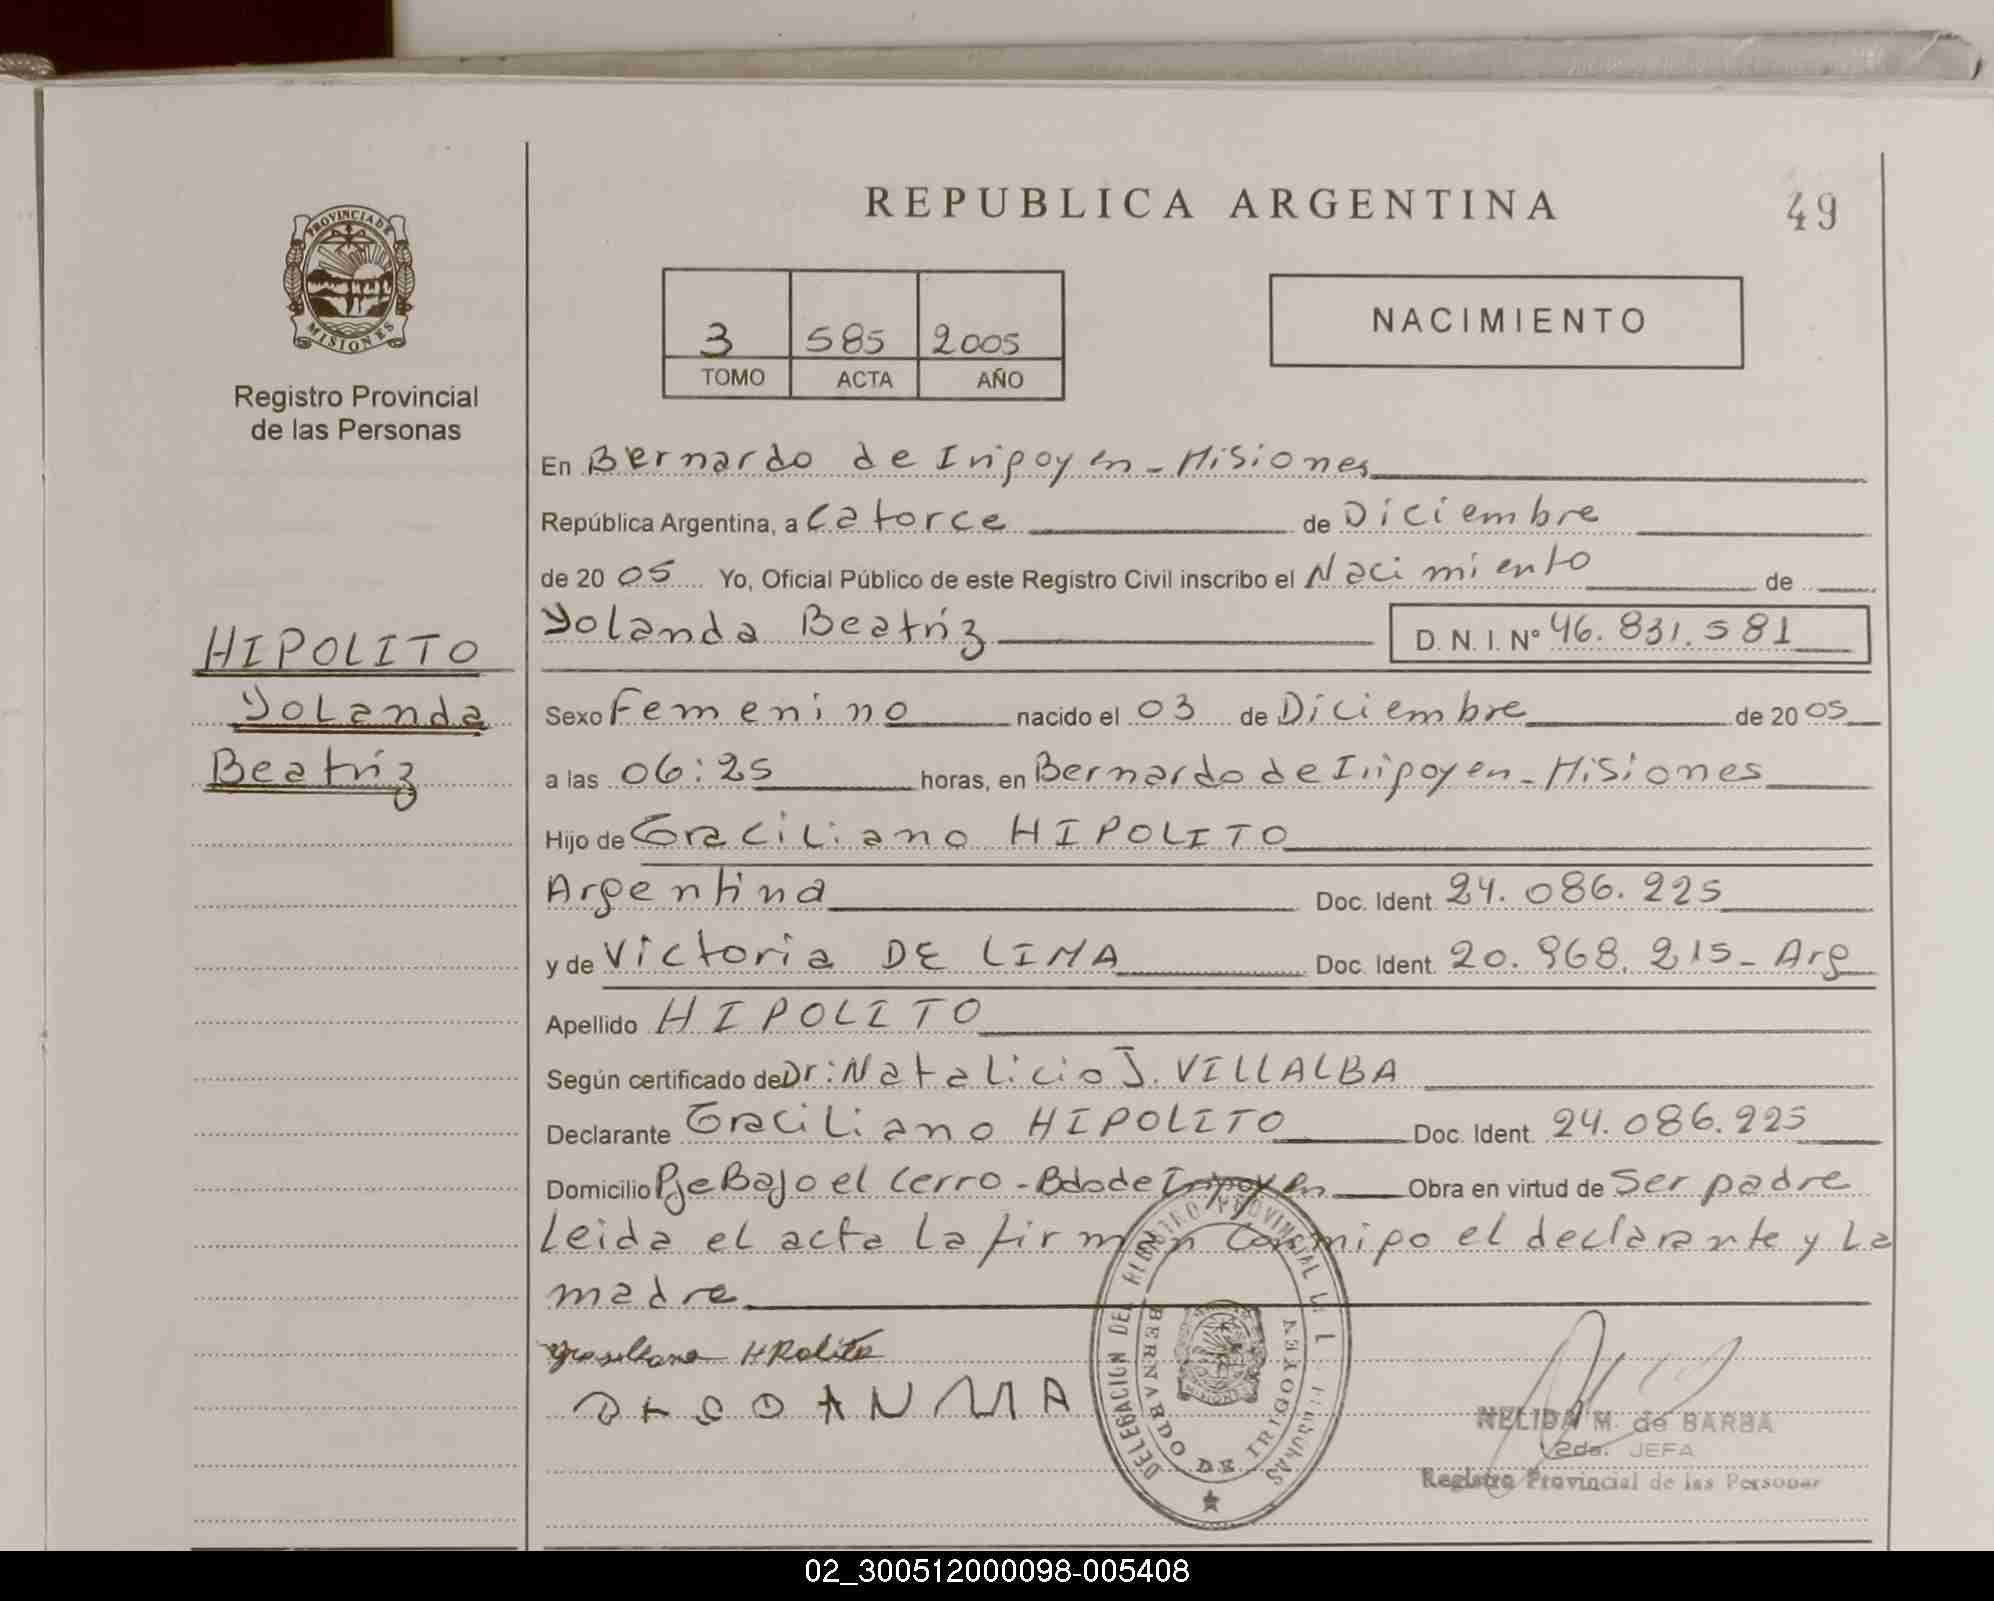 REPUBLICA ARGENTINA
49
PROVINCIA DE
MISIONES
Registro Provincial
de las Personas
3 585 2005
TOMO ACTA AÑO
NACIMIENTO
En Bernardo de Iripoyen - Misiones
República Argentina, a Catorce de Diciembre
de 20 05 Yo, Oficial Público de este Registro Civil inscribo el Nacimiento de
Yolanda Beatríz D. N. I. Nº 46.831.581
HIPOLITO
Yolanda
Beatríz
Sexo Femenino nacido el 03 de Diciembre de 20 05
a las 06:25 horas, en Bernardo de Iripoyen - Misiones
Hijo de Graciliano HIPOLITO
Argentina Doc. Ident. 24.086.225
y de Victoria DE LIMA Doc. Ident. 20.968.215 - Arg
Apellido HIPOLITO
Según certificado de Dr: Natalicio J. VILLALBA
Declarante Graciliano HIPOLITO Doc. Ident. 24.086.225
Domicilio Pje Bajo el Cerro - Bdo de Iripoyen Obra en virtud de Ser padre
Leida el acta la firman conmigo el declarante y la
madre
DELEGACION DEL REGISTRO PROVINCIAL DE LAS PERSONAS
BERNARDO DE IRIGOYEN
NELIDA M. de BARBA
2da. JEFA
Registro Provincial de las Personas
02_300512000098-005408